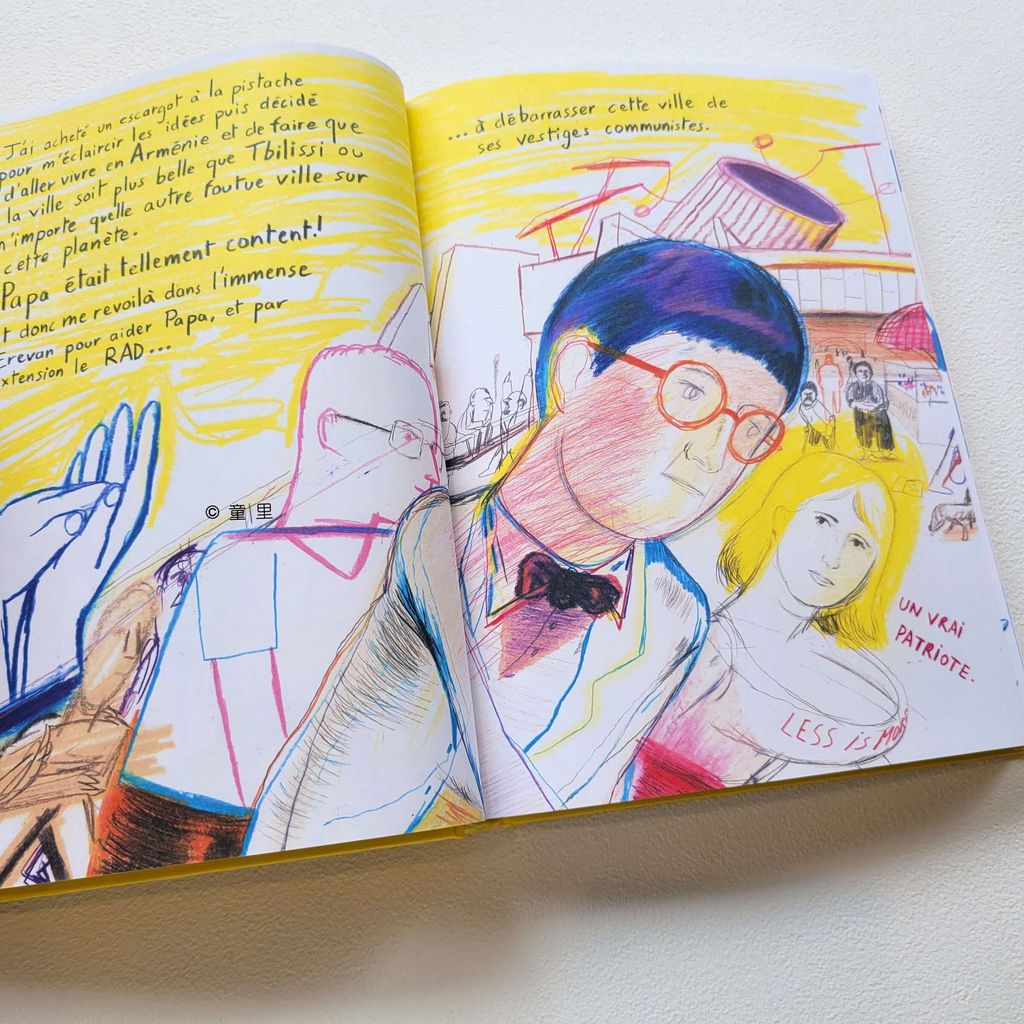 J'ai acheté un escargot à la pistache
pour m'éclaircir les idées puis décidé
d'aller vivre en Arménie et de faire que
la ville soit plus belle que Tbilissi ou
n'importe quelle autre foutue ville sur
cette planète.
Papa était tellement content!
t donc me revoilà dans l'immense
Erevan pour aider Papa, et par
xtension le RAD...
...à débarrasser cette ville de
ses vestiges communistes.
© 童里
UN VRAI
PATRIOTE.
LESS is More